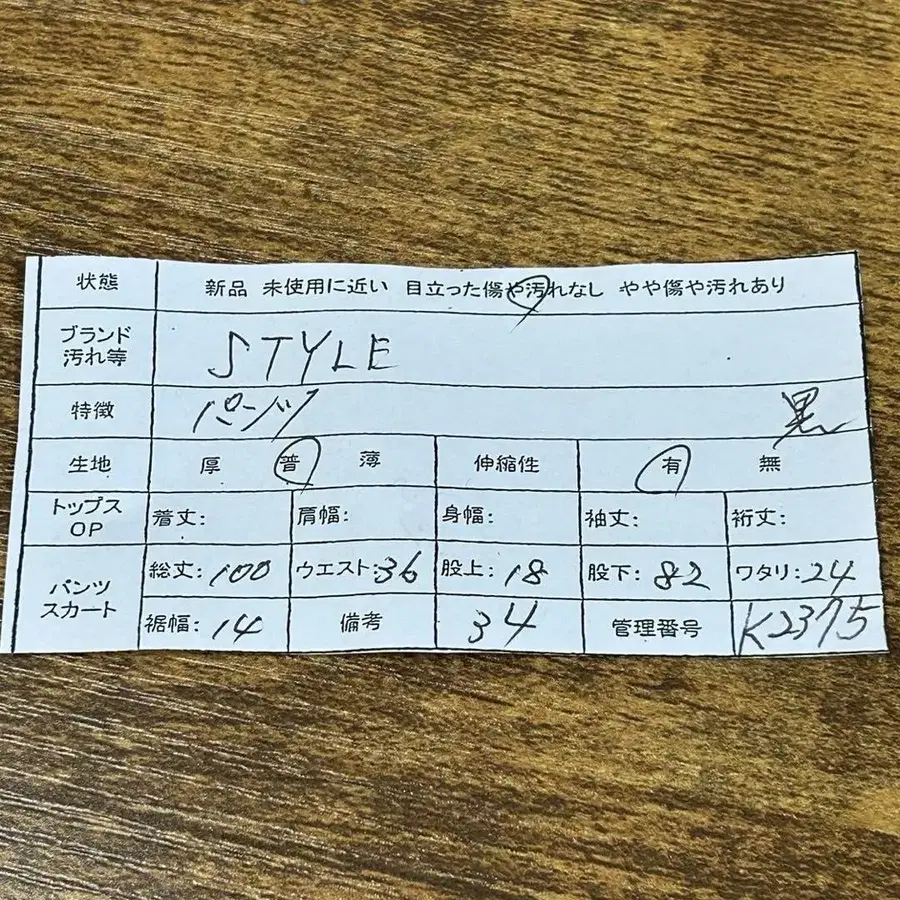 状態 新品 未使用に近い 目立った傷や汚れなし やや傷や汚れあり
ブランド
汚れ等 STYLE
特徴 パンツ 黒
生地 厚 普 薄 伸縮性 有 無
トップス
OP 着丈: 肩幅: 身幅: 袖丈: 裄丈:
パンツ
スカート 総丈:100 ウエスト:36 股上:18 股下:82 ワタリ:24
裾幅:14 備考 34 管理番号 K2375